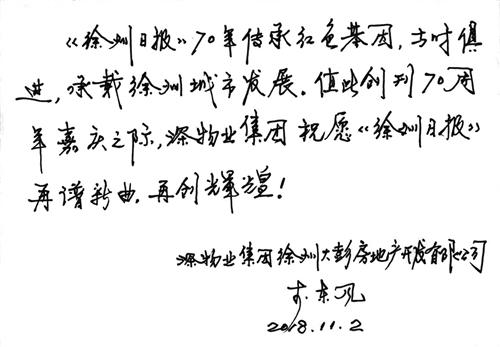 《徐州日报》70年传承红色基因，与时俱
进，承载徐州城市发展。值此创刊70周
年嘉庆之际，深物业集团祝愿《徐州日报》
再谱新曲，再创辉煌！
深物业集团徐州大彭房地产开发有限公司
东风
2018.11.2